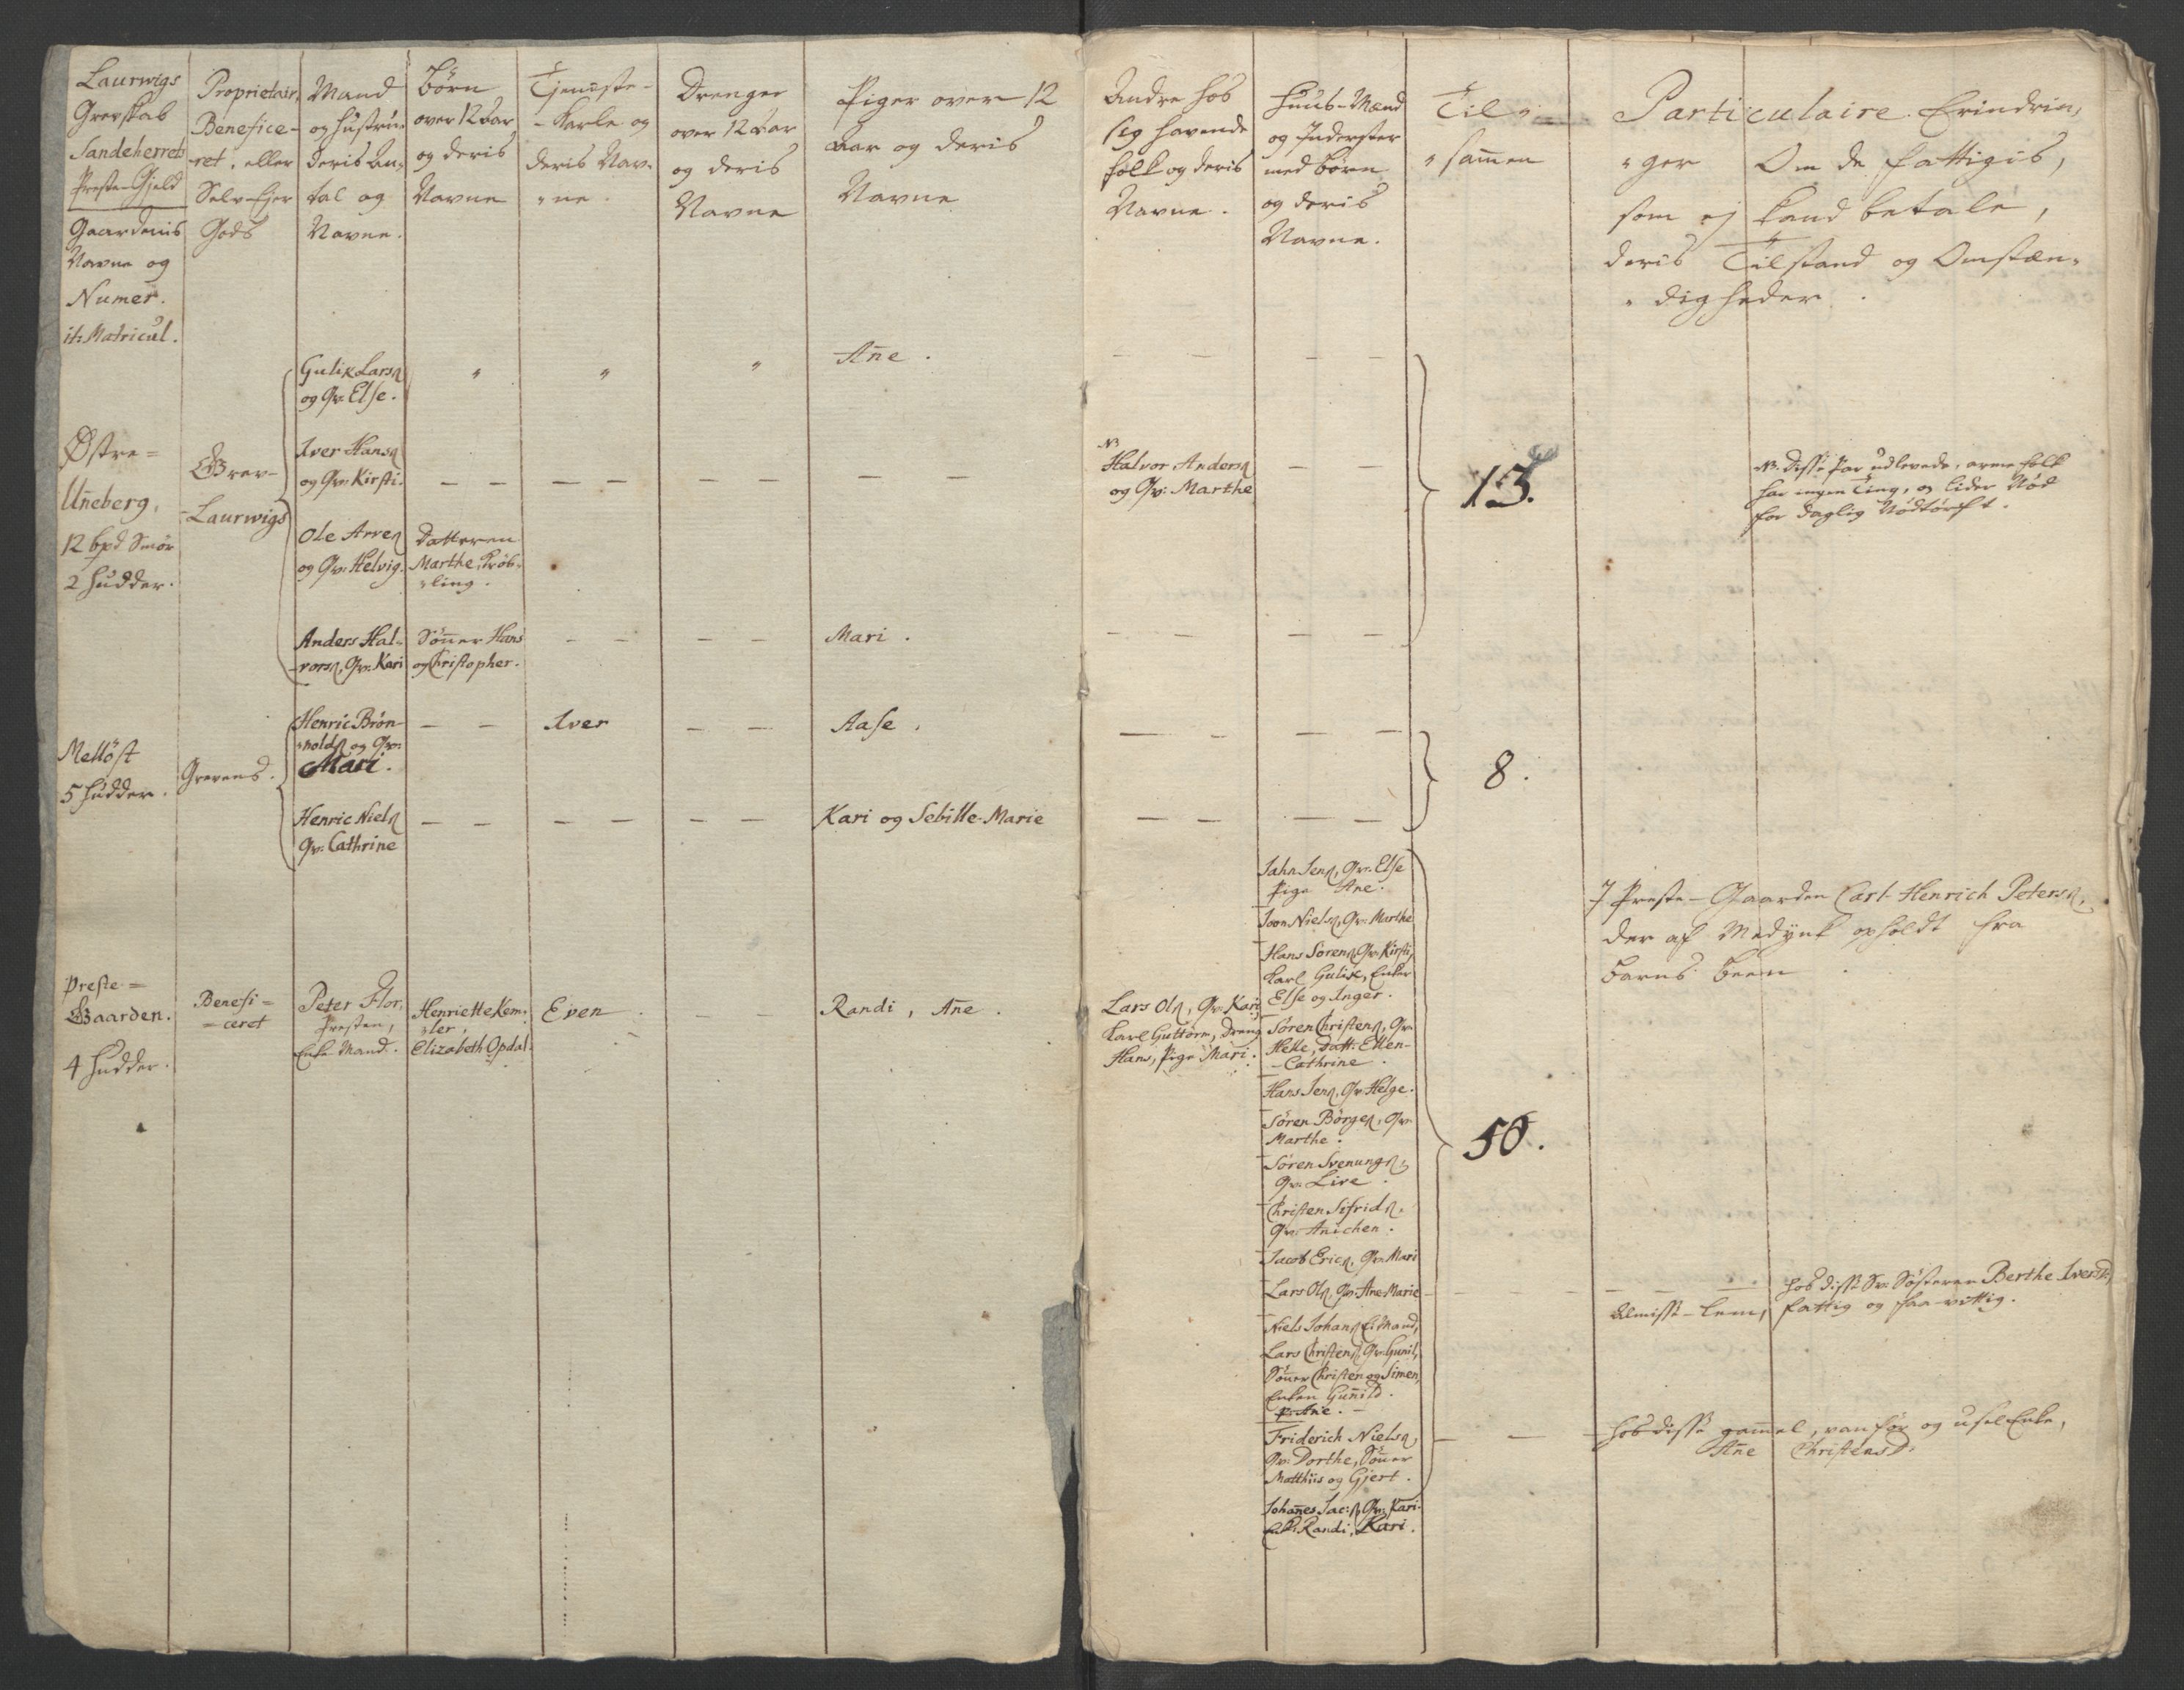 Laurwigs
Grevskab
Sandeherrets
Preste-Gjeld
Gaardenis
Navne og
Numer.
it: Matricul.
Proprietair,
Benefice-
ret, eller
Selv-Ejer
Gods
Mand
og Hustru,
deris An-
tal og
Navne.
Børn
over 12 Aar
og deris
Navne
Tjeneste-
-Karle og
deris Nav-
"ne.
Drenger
over 12 Aar
og deris
Navne
Piger over 12
Aar og deris
Navne
Andre hos
sig havende
folk og deris
Navne.
Huus-Mænd
og Inderster
med Børn
og deris
Navne.
Til-
"sam̄en
Particulaire Erindrin,
"ger Om de fattigis,
som ej kand betale,
deris Tilstand og Omstæn-
"digheder.
Østre=
Un̄eberg,
12 bpd Smør
2 Hudder.
Grev-
-Laurwigs
Gulik Lars
og Qv. Else.
" " "
An̄e.
— — — —
Iver Hans
og Qv: Kirsti.
— — — — — — — —
NB
Halvor Anders
og Qv: Marthe
— —
13.
NB. Disse par udlevede, arme folk
har ingen Ting, og lider Nød
for daglig Nødtørft.
Ole Arve
og Qv: Helvig.
Datteren
Marthe, Krøb-
"ling.
Anders Hal-
-vors, Qv: Kari
Søn̄er Hans
og Christopher.
— — — —
Mari.
— — — —
Mellöst
5 Hudder.
Grevens.
Henric Brøn-
"nolds og Qv:
Mari.
— —
Iver
— —
Aase.
— — — —
8.
Henric Niels
Qv: Cathrine
— — — — — —
Kari og Sebille-Marie
— — — —
Preste=
Gaarden.
4 Hudder.
Benefi=
=ceret
Peter Flor,
Presten,
Enke-Mand.
Henriette Kem-
"ler,
Elizabeth Opdal.
Even.
— —
Randi, An̄e.
Lars Ols, Qv: Kari,
Karl Guttorm, Dreng
Hans, Pige Mari.
Jahn Jens, Qv: Else
Pige Ane.
Joon Niels, Qv: Marthe
Hans Sørens Qv: Kirsti,
Karl Gulik, Enker
Else og Inger.
Søren Christens, Qv:
Helle, Datt: Ellen-
-Cathrine.
Hans Jens, Qv: Helge.
Søren Børges, Qv:
Marthe.
Søren Svenungs,
Qv: Live.
Christen Sifrids,
Qv: Anichen.
Jacob Erics, Qv: Mari
Lars Ols, Qv: Ane Marie
Niels Johans E: Mand,
Lars Christens, Qv: Gunil,
Søn̄er Christen og Simen,
Enken Gun̄ild.
P: Ane.
Friderich Niels,
Qv: Dorthe, Søn̄er
Matthiis og Gjert.
Johan̄es Jac:s, Qv: Kari.
Enk: Randi, Kari.
50.
I Preste-Gaarden Carl Henrich Peters,
der af Medynk opholdt fra
Barns-Been.
hos disse Sv: Søsteren Berthe Iversd:
Almisse-lem, fattig og faa-vittig.
hos disse gam̄el, vanfør og usel Enke,
An̄e Christensd: